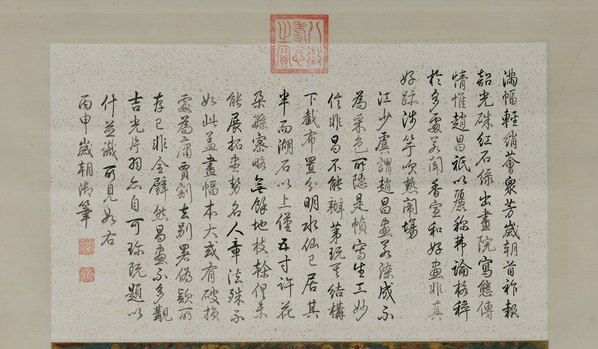 滿幅輕綃薈眾芳歲朝首祚報
韶光硃紅石綠出畫院寫態傳
情惟趙昌祇以麗稱弗論格稗
於多處若聞香宣和好畫非真
好跡涉竽吹熱鬧場
江少虞謂趙昌畫若染成不
為采色所隱是幀寫生工妙
信非昌不能辦第玩其結構
下截布置分明水仙已居其
半而湖石以上僅五寸許花
朵繇密略無餘地枝榦俱未
能展拓盡勢名人章法殊不
如此蓋畫幅本大或有破損
處為庸賈割去別署偽款而
存已非全璧然昌畫亦不多觀
吉光片羽亦自可珍玩題以
什並識可見如右
丙申歲朝御筆
八徵耄念之寶